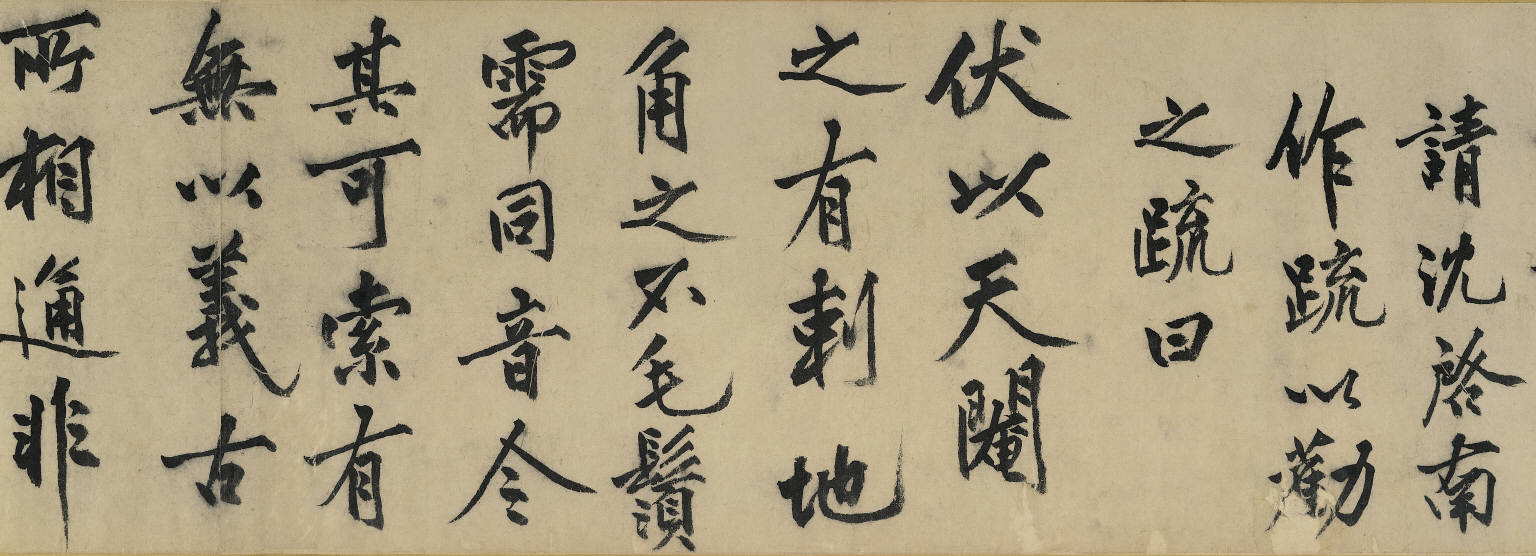 請沈啓南
作疏以勸
之疏曰
伏以天閹
之有刺地
角之不毛鬚
需同音今
其可索有
無以義古
所相通非